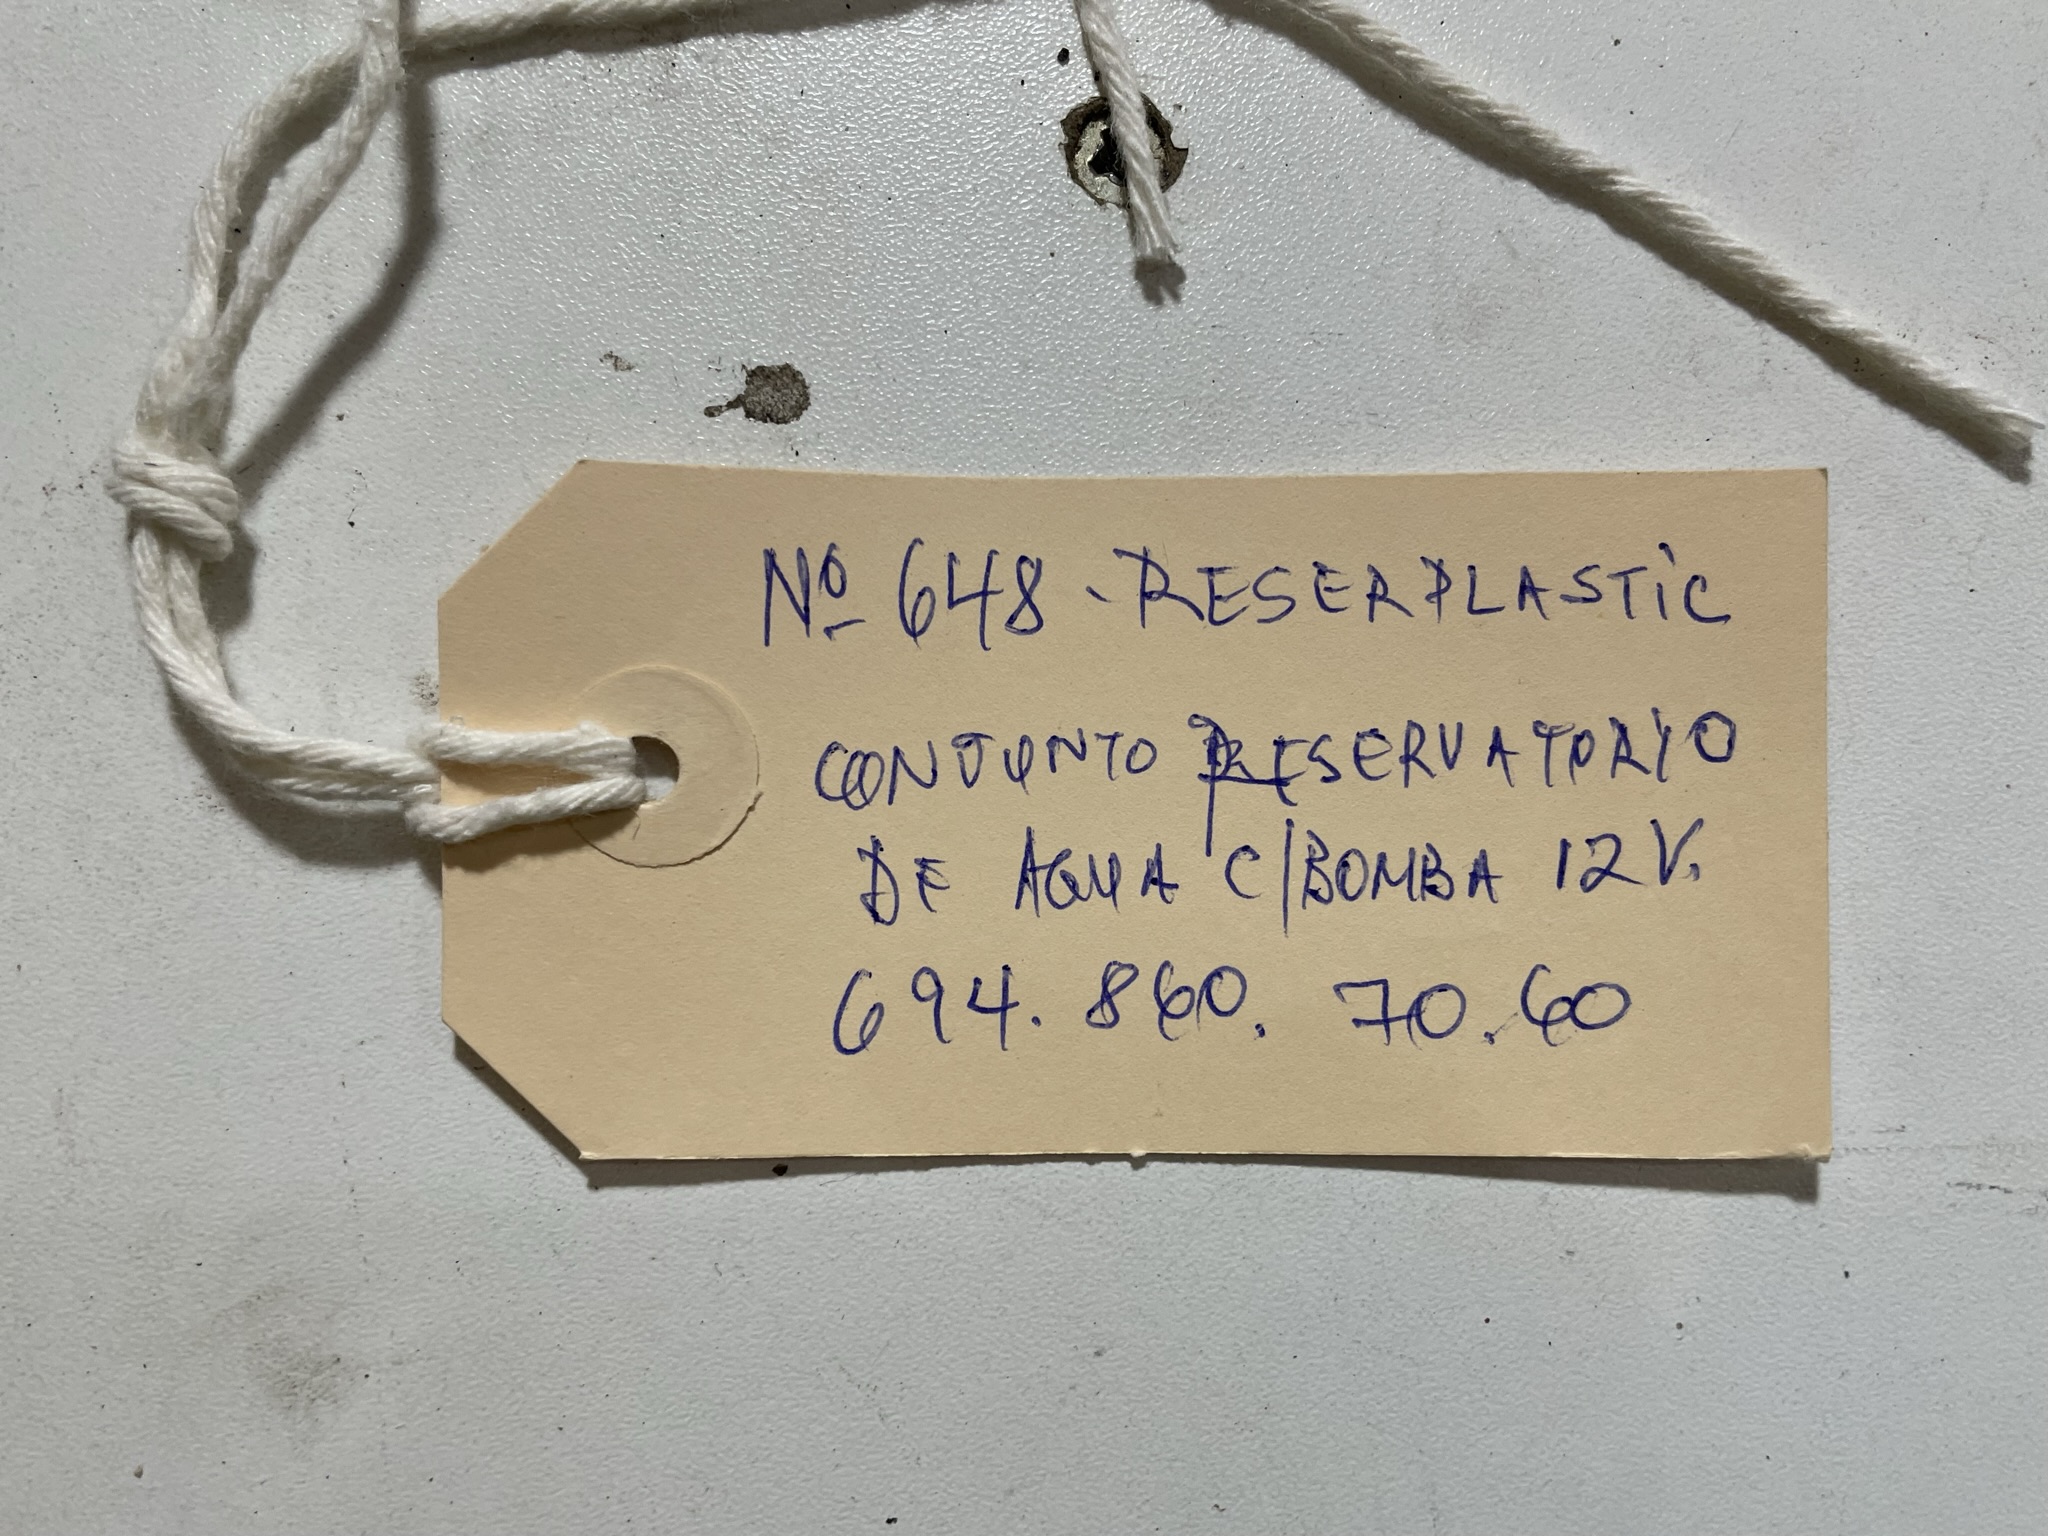 Nº 648 - RESERPLASTIC
CONJUNTO RESERVATORIO
DE AGUA C/BOMBA 12 V.
694. 860. 70.60